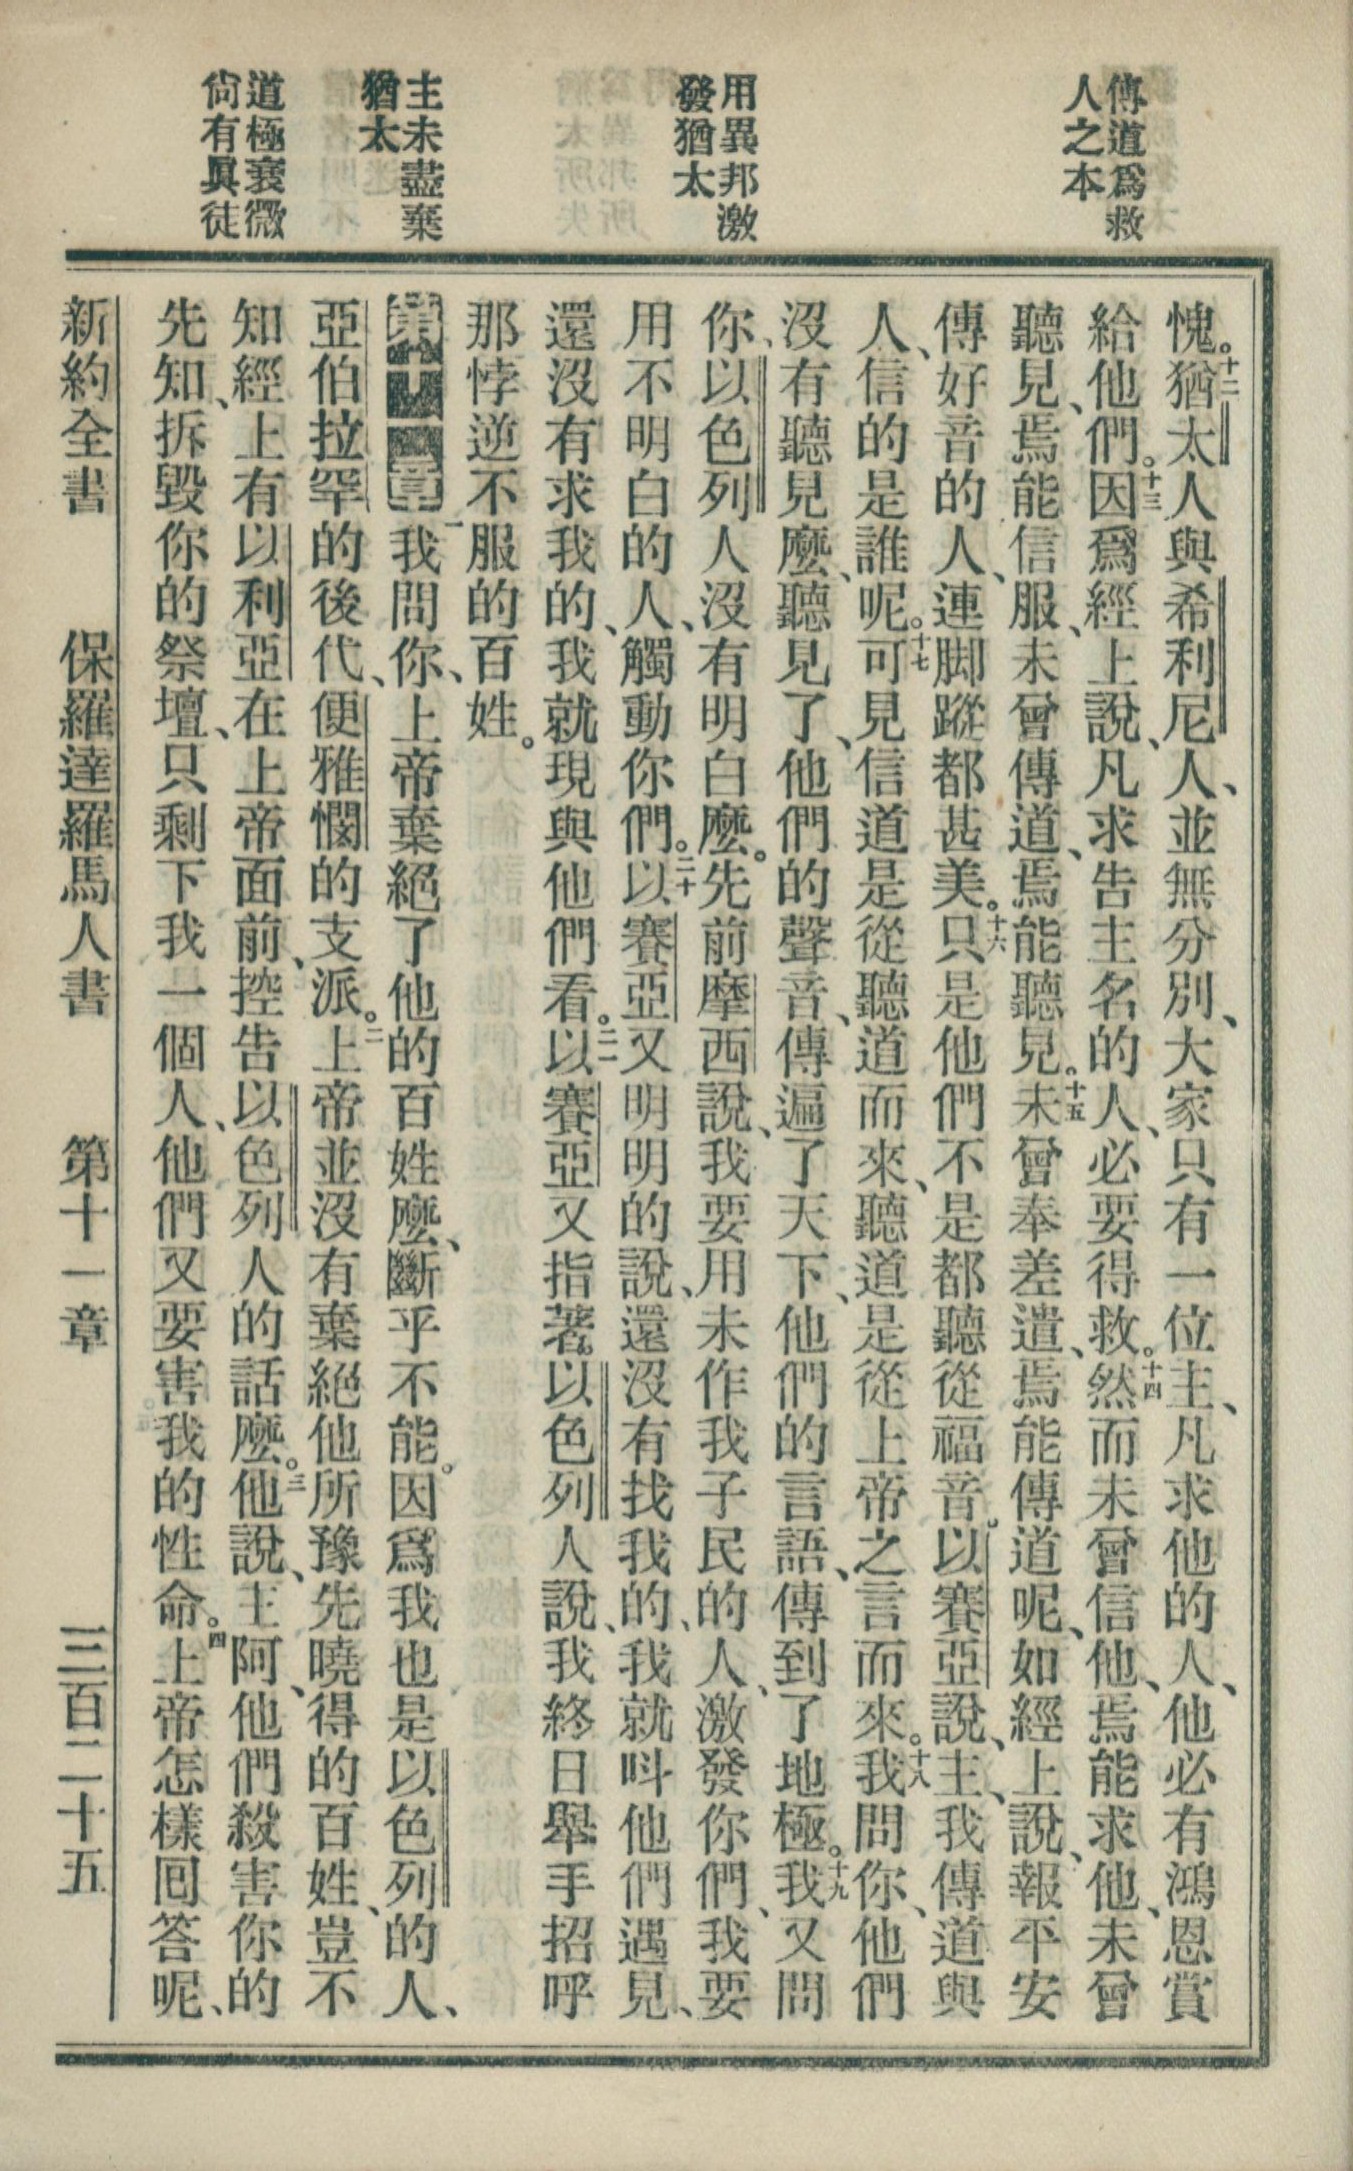 傳道爲救
人之本
用異邦激
發猶太
主未盡棄
猶太
道極衰微
尙有眞徒
愧。十二猶太人與希利尼人、並無分別、大家只有一位主、凡求他的人、他必有鴻恩賞
給他們。十三因爲經上說、凡求告主名的人、必要得救。十四然而未曾信他、焉能求他、未曾
聽見、焉能信服、未曾傳道、焉能聽見。十五未曾奉差遣、焉能傳道呢、如經上說、報平安
傳好音的人、連脚蹤都甚美。十六只是他們不是都聽從福音。以賽亞說、主、我傳道與
人、信的是誰呢。十七可見信道是從聽道而來、聽道是從上帝之言而來。十八我問你、他們
沒有聽見麼、聽見了、他們的聲音、傳遍了天下、他們的言語、傳到了地極。十九我又問
你、以色列人沒有明白麼。先前摩西說、我要用未作我子民的人、激發你們、我要
用不明白的人、觸動你們。二十以賽亞又明明的說、還沒有找我的、我就呌他們遇見、
還沒有求我的、我就現與他們看。二一以賽亞又指著以色列人說、我終日舉手招呼
那悖逆不服的百姓。
第十一章 一我問你、上帝棄絕了他的百姓麼、斷乎不能。因爲我也是以色列的人、
亞伯拉罕的後代、便雅憫的支派。二上帝並沒有棄絕他所豫先曉得的百姓、豈不
知經上有以利亞在上帝面前、控告以色列人的話麼。三他說、主阿、他們殺害你的
先知、拆毀你的祭壇、只剩下我一個人、他們又要害我的性命。四上帝怎樣回答呢、
新約全書 保羅達羅馬人書 第十一章 三百二十五